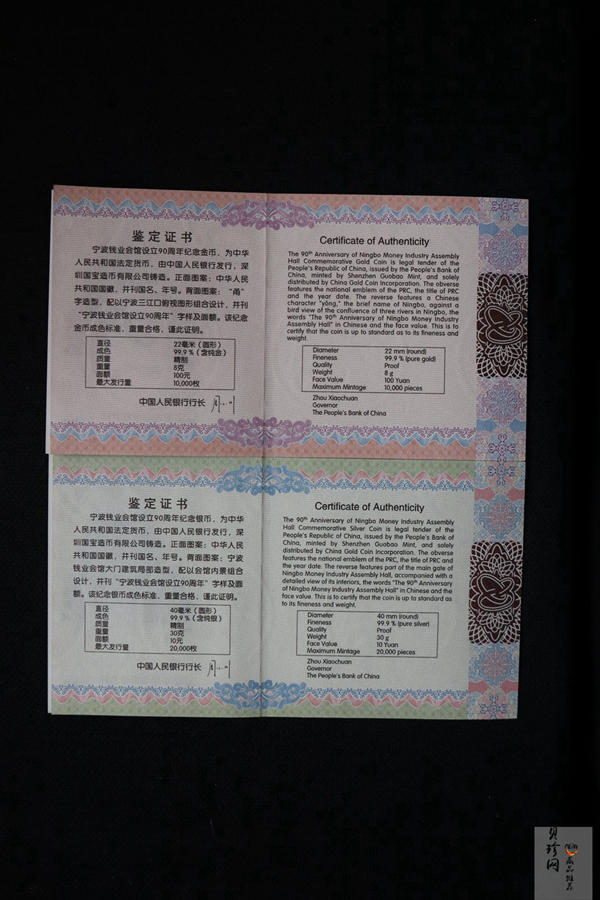 鉴定证书
宁波钱业会馆设立90周年纪念金币，为中华
人民共和国法定货币，由中国人民银行发行，深
圳国宝造币有限公司铸造。正面图案：中华人民
共和国国徽，并刊国名、年号。背面图案：“甬”
字造型，配以宁波三江口俯视图形组合设计，并刊
“宁波钱业会馆设立90周年”字样及面额。该纪念
金币成色标准，重量合格，谨此证明。
直径 22毫米（圆形）
成色 99.9％（含纯金）
质量 精制
重量 8克
面额 100元
最大发行量 10,000枚
中国人民银行行长
Certificate of Authenticity
The 90th Anniversary of Ningbo Money Industry Assembly
Hall Commemorative Gold Coin is legal tender of the
People's Republic of China, issued by the People's Bank of
China, minted by Shenzhen Guobao Mint, and solely
distributed by China Gold Coin Incorporation. The obverse
features the national emblem of the PRC, the title of PRC
and the year date. The reverse features a Chinese
character "yǒng," the brief name of Ningbo, against a
bird view of the confluence of three rivers in Ningbo, the
words "The 90th Anniversary of Ningbo Money Industry
Assembly Hall" in Chinese and the face value. This is to
certify that the coin is up to standard as to its fineness and
weight.
Diameter 22 mm (round)
Fineness 99.9 % (pure gold)
Quality Proof
Weight 8 g
Face Value 100 Yuan
Maximum Mintage 10,000 pieces
Zhou Xiaochuan
Governor
The People's Bank of China
鉴定证书
宁波钱业会馆设立90周年纪念银币，为中华
人民共和国法定货币，由中国人民银行发行，深
圳国宝造币有限公司铸造。正面图案：中华人民
共和国国徽，并刊国名、年号。背面图案：宁波
钱业会馆大门建筑局部造型，配以会馆内景组合
设计，并刊“宁波钱业会馆设立90周年”字样及面
额。该纪念银币成色标准，重量合格，谨此证明。
直径 40毫米（圆形）
成色 99.9％（含纯银）
质量 精制
重量 30克
面额 10元
最大发行量 20,000枚
中国人民银行行长
Certificate of Authenticity
The 90th Anniversary of Ningbo Money Industry Assembly
Hall Commemorative Silver Coin is legal tender of the
People's Republic of China, issued by the People's Bank of
China, minted by Shenzhen Guobao Mint, and solely
distributed by China Gold Coin Incorporation. The obverse
features the national emblem of the PRC, the title of PRC and
the year date. The reverse features part of the main gate of
Ningbo Money Industry Assembly Hall, accompanied with a
detailed view of its interiors, the words "The 90th Anniversary
of Ningbo Money Industry Assembly Hall" in Chinese and the
face value. This is to certify that the coin is up to standard as
to its fineness and weight.
Diameter 40 mm (round)
Fineness 99.9 % (pure silver)
Quality Proof
Weight 30 g
Face Value 10 Yuan
Maximum Mintage 20,000 pieces
Zhou Xiaochuan
Governor
The People's Bank of China
贝珍网